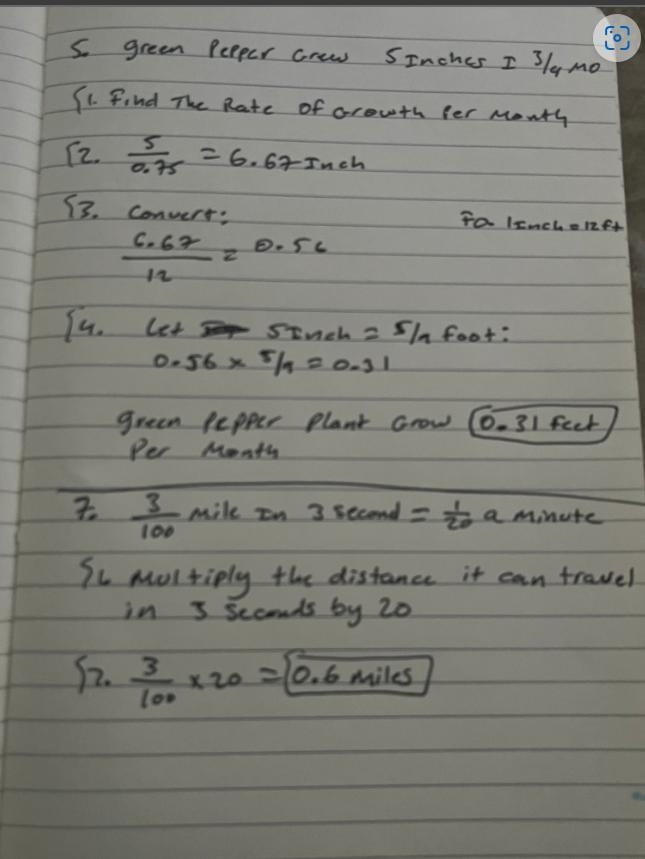 5. green Pepper Grew 5 Inches I 3/4 MO
S1. Find The Rate of Growth Per Month
S2. 5/0.75 = 6.67 Inch
S3. Convert: Fa 1 Inch = 12 ft
6.67/12 = 0.56
S4. Let 5 Inch = 5/9 foot:
0.56 x 5/9 = 0.31
green Pepper Plant Grow 0.31 feet
Per Month
7. 3/100 Mile In 3 second = 1/20 a Minute
S1. Multiply the distance it can travel
in 3 seconds by 20
S2. 3/100 x 20 = 0.6 Miles